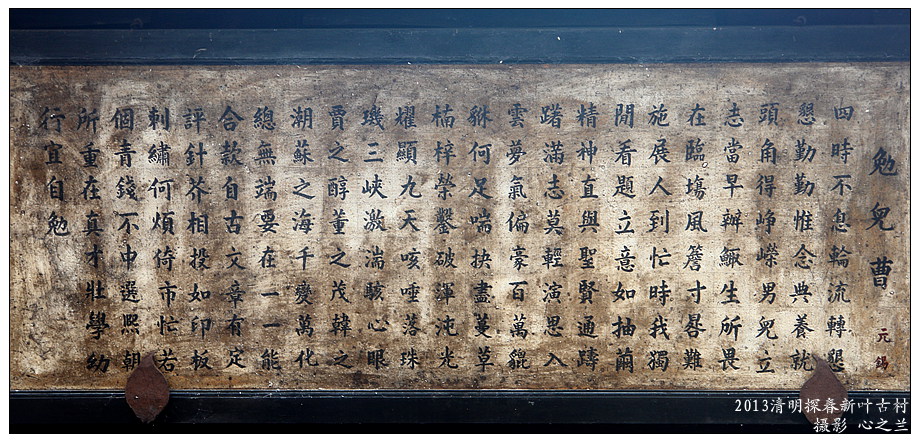 勉兒曹
元錫
四時不息輪流轉懇
懇勤勤惟念典養就
頭角得崢嶸男兒立
志當早辦鯫生所畏
在臨塲風簷寸晷難
施展人到忙時我獨
間看題立意如抽繭
精神直與聖賢通躊
躇滿志莫輕演思入
雲夢氣偏豪百萬貔
貅何足喘抉盡蔓草
楠梓榮鑿破渾沌光
耀顯九天咳唾落珠
璣三峽激湍駭心眼
賈之醇董之茂韓之
潮蘇之海千變萬化
總無端要在一一能
合款自古文章有定
評針芥相投如印板
刺繡何煩倚市忙若
個青錢不中選熙朝
所重在真才壯學幼
行宜自勉
2013清明探春新叶古村
摄影 心之兰